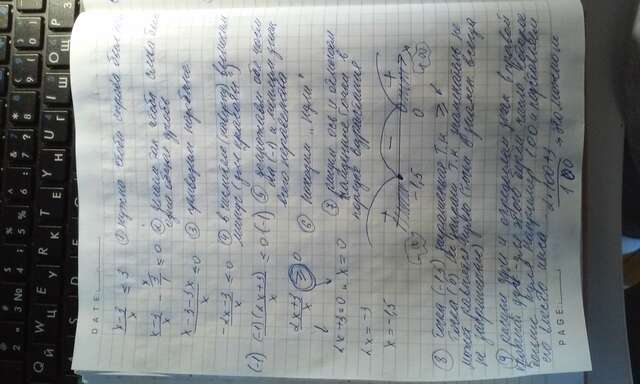 DATE:
x-3/x ≤ 3 ① нужна чтобы справа был
x-3/x - 3/1 ≤ 0 ② делаем так чтобы слева была
одна общая дробь
x-3-3x/x ≤ 0 ③ приводим подобные
-2x-3/x ≤ 0 ④ в числителе (наверху) выносим
минус (для красоты)
(-1) (-1)(2x+3)/x ≤ 0 (-1) ⑤ домножаем обе части
на (-1) и меняем знак
всего неравенства
2x+3/x ≥ 0 ⑥ находим "нули"
2x+3=0 x=0 ⑦ рисуем ось и отмечаем
найденные точки в
порядке возрастания
2x = -3
x = -1,5
+ - +
-∞ -1,5 0 +∞ x
⑧ Точка (-1,5) закрашенная т.к. ≥
Точка (0) не закраш. т.к. знаменатель не
может равняться нулю (точки в знамен. всегда
не закрашены)
⑨ рисуем дуги и определяем знак в правой
крайней дуге - для этого берем число, которое
больше нуля например 100 и подставляем
его вместо икса
2·100+3/100
PAGE: